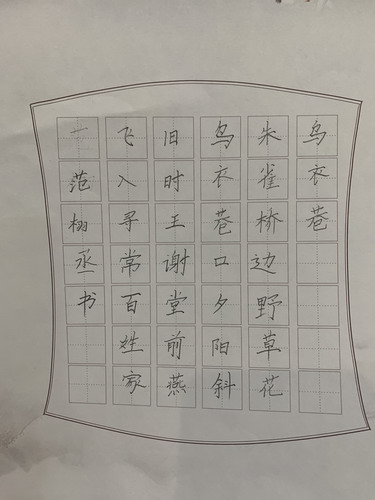 乌衣巷
朱雀桥边野草花
乌衣巷口夕阳斜
旧时王谢堂前燕
飞入寻常百姓家
范栩丞书